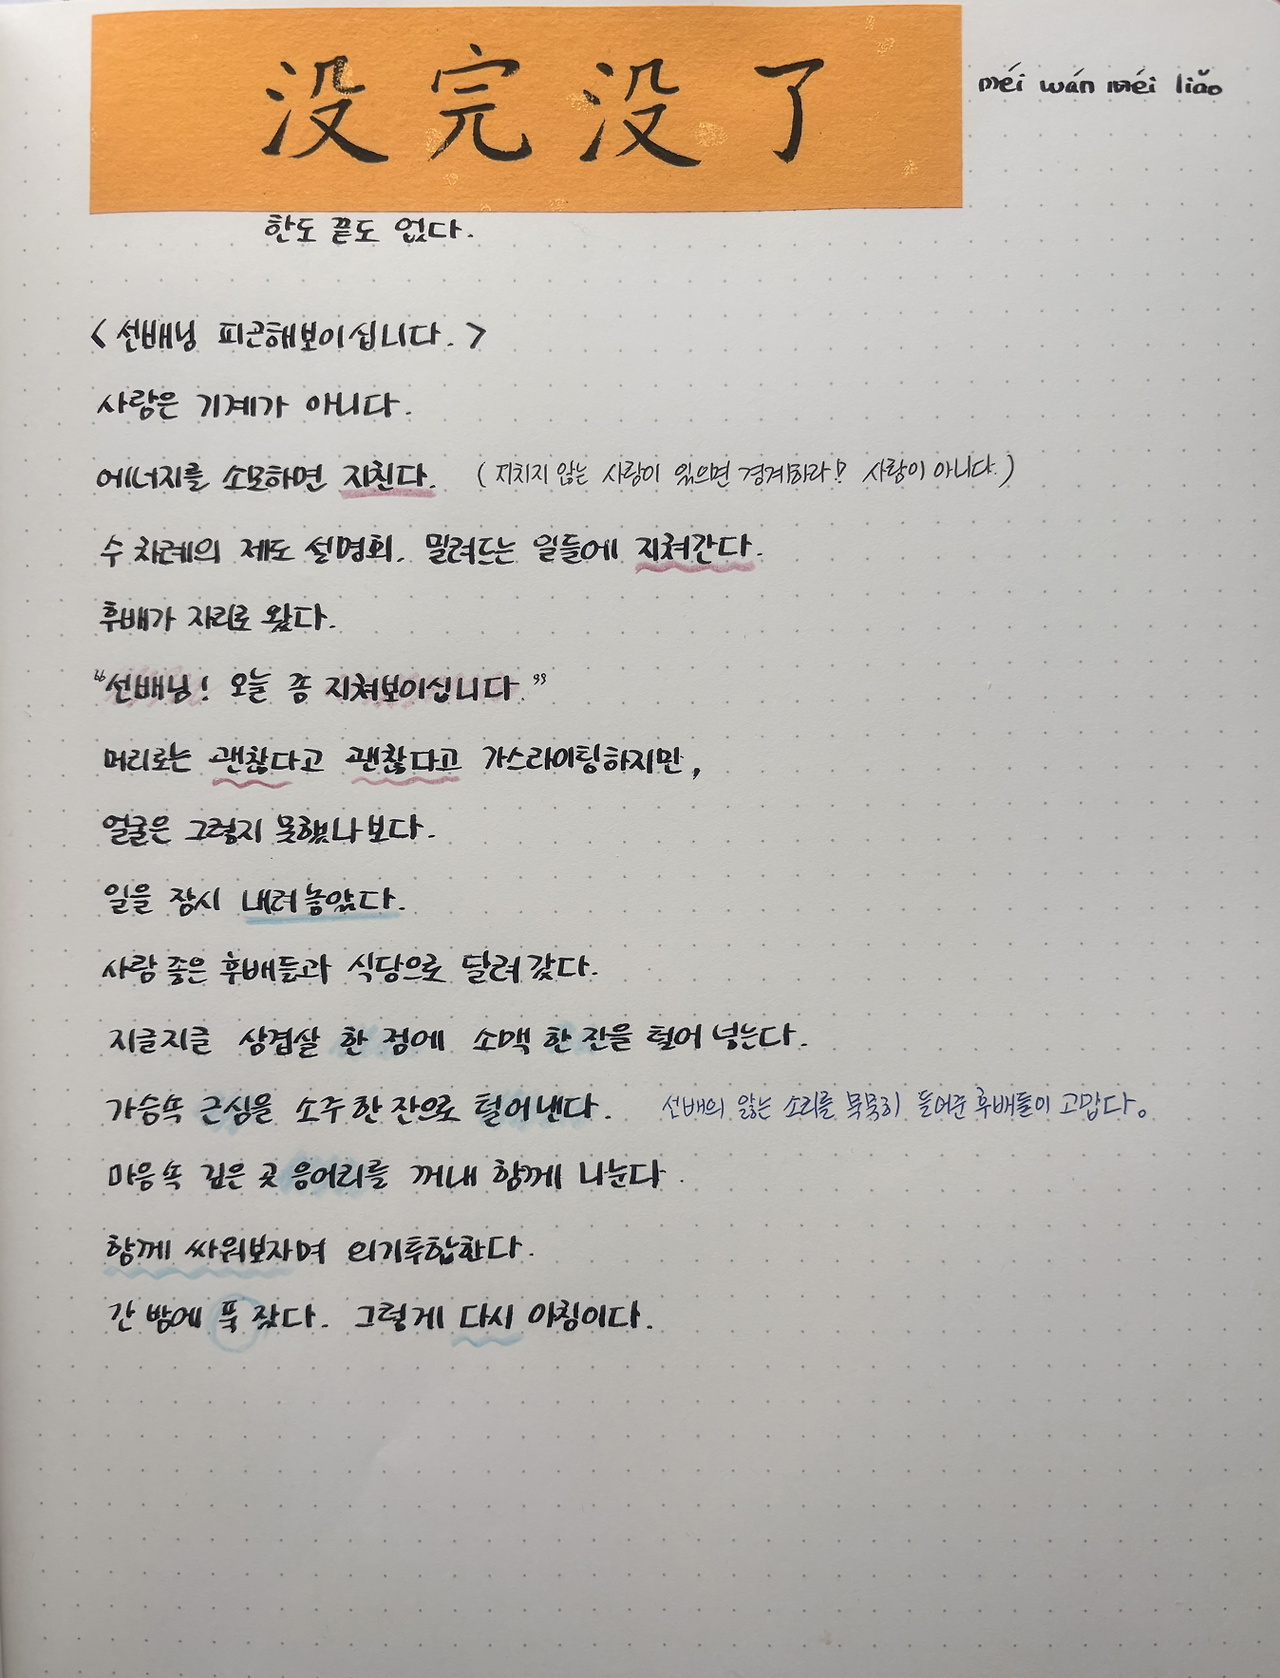 没完没了
méi wán méi liǎo
한도 끝도 없다.
<선배님 피곤해보이십니다.>
사람은 기계가 아니다.
에너지를 소모하면 지친다. (지치지 않는 사람이 있으면 경계하라! 사람이 아니다.)
수 차례의 제도 설명회. 밀려드는 일들에 지쳐간다.
후배가 자리로 왔다.
"선배님! 오늘 좀 지쳐보이십니다."
머리로는 괜찮다고 괜찮다고 가스라이팅하지만,
얼굴은 그렇지 못했나보다.
일을 잠시 내려놓았다.
사람 좋은 후배들과 식당으로 달려갔다.
지글지글 삼겹살 한 점에 소맥 한 잔을 털어 넣는다.
가슴속 근심을 소주 한 잔으로 털어낸다. 선배의 앓는 소리를 묵묵히 들어준 후배들이 고맙다。
마음속 깊은 곳 응어리를 꺼내 함께 나눈다.
함께 싸워보자며 의기투합한다.
간 밤에 푹 잤다. 그렇게 다시 아침이다.